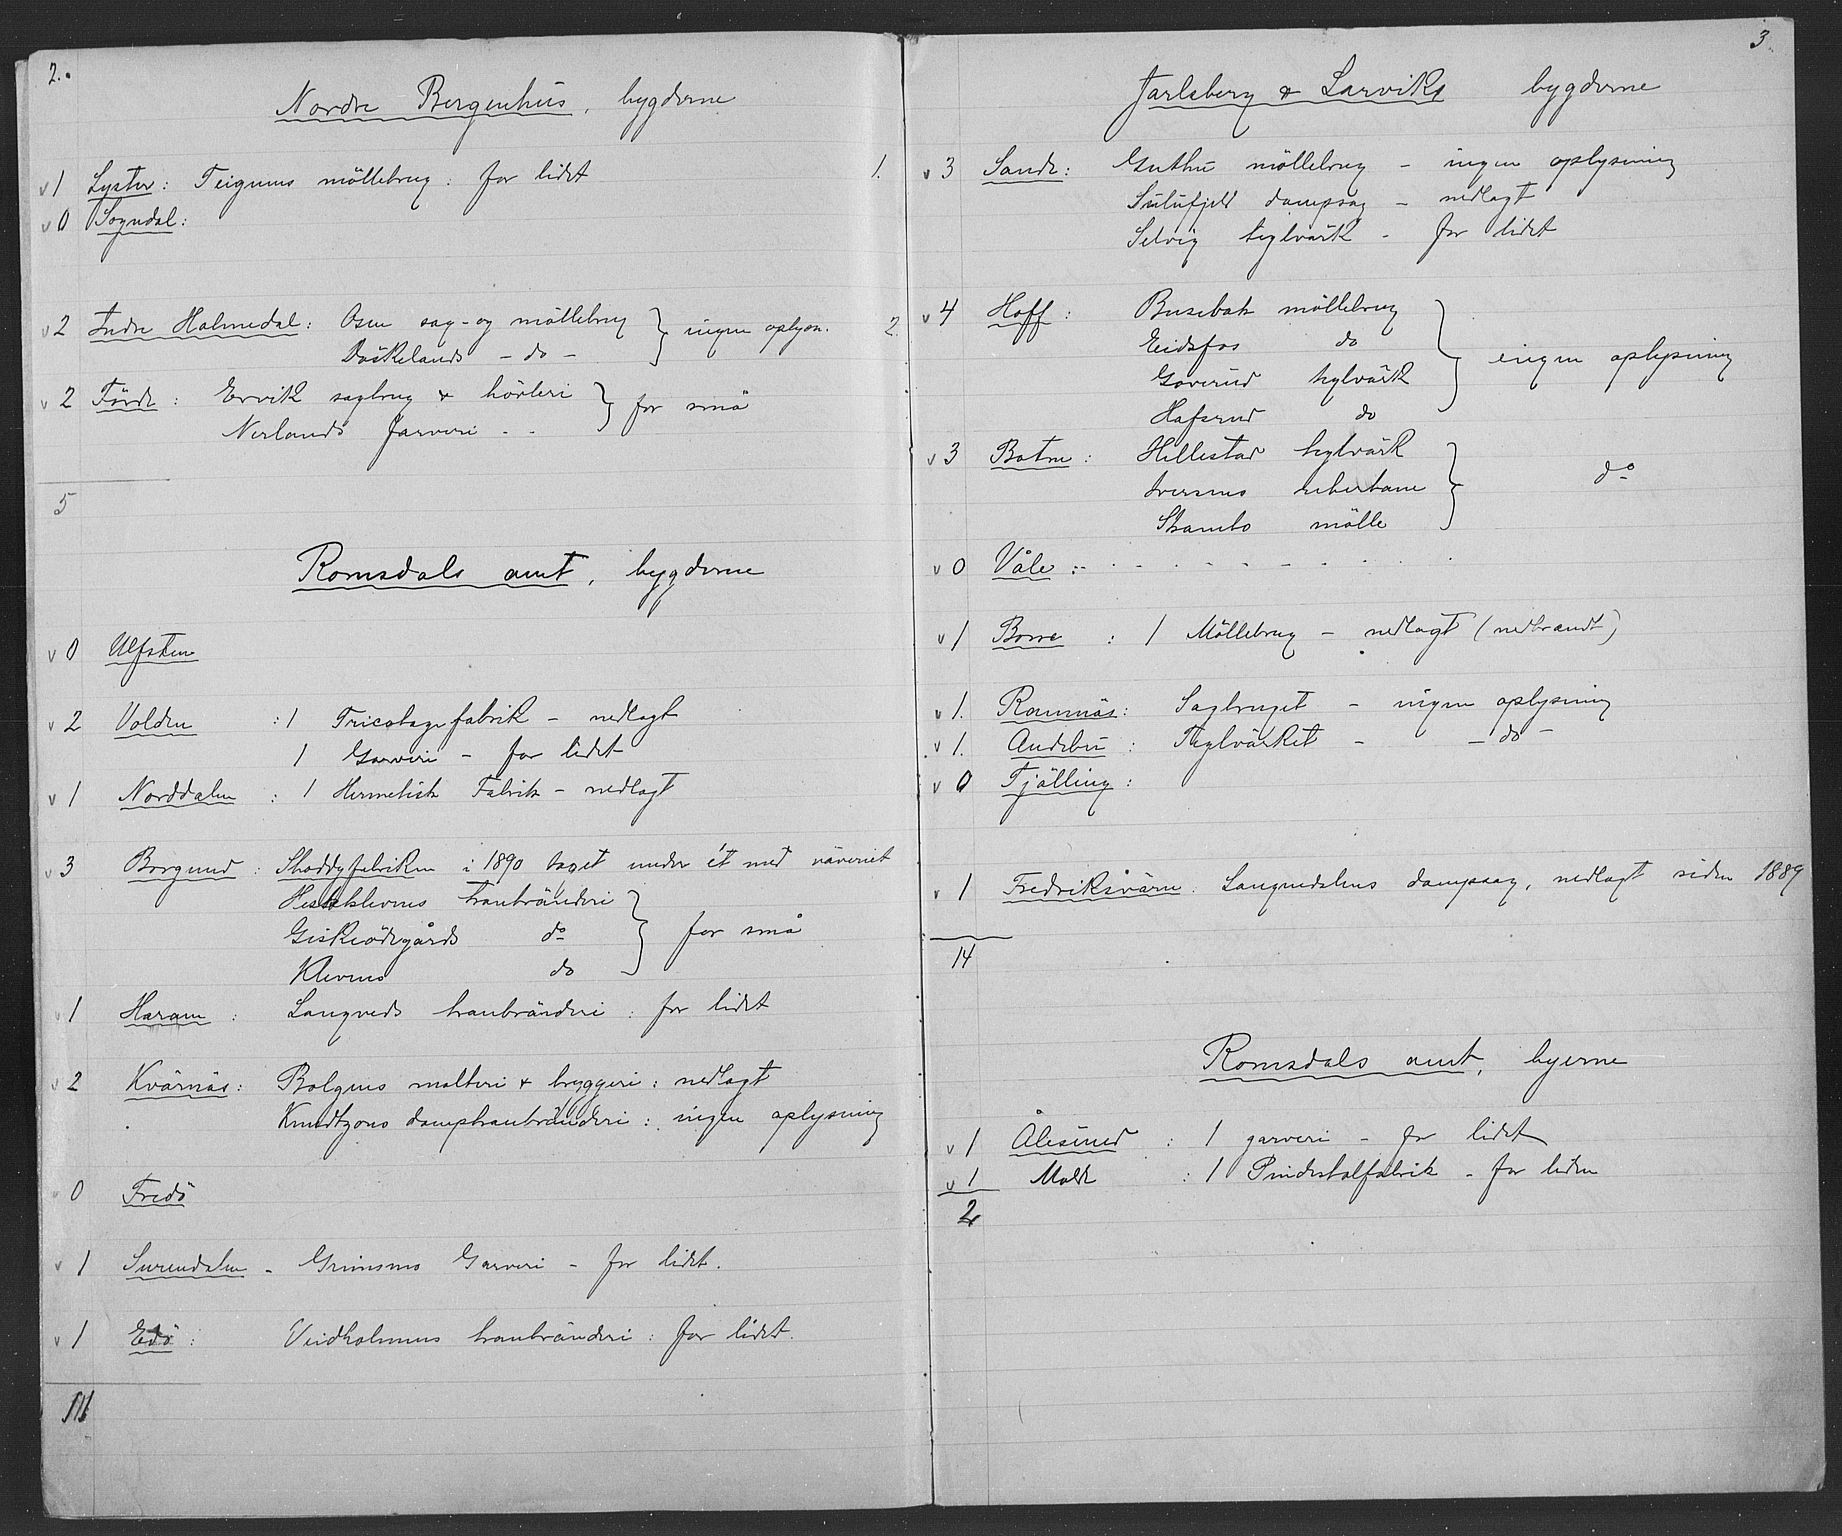 2.
Nordre Bergenhus, bygderne
v 1 Lyster: Teigums möllebrug: for lidet
v 0 Sogndal:
v 2 Indre Holmedal: Osen sag- og möllebrug } ingen oplysn.
— do —
v 2 Förde: Ervik sagbrug & hövleri } for små
Nerlands farveri - -
5
Romsdals amt, bygderne
v 0 Ulfsten
v 2 Volden : 1 Tricotagefabrik — nedlagt
1 Garveri — for lidet
v 1 Norddalen : 1 Hermetisk Fabrik — nedlagt
v 3 Borgund : Shoddyfabriken i 1890 taget under ét med väveriet
tranbränderi } for små
Giskeödegårds do
Klevens do
v 1 Haram : Langveds tranbränderi : for lidet
v 2 Kvärnäs: Bolgens malteri & bryggeri : nedlagt
Knudtzons damptranbränderi : ingen oplysning
v 0 Fredö
v 1 Surendalen — Grimsmo Garveri — for lidet.
v 1 Edö : Veidholmens tranbränderi : for lidet.
11
3.
Jarlsberg & Larviks bygderne
1. v 3 Sande: möllebrug — ingen oplysning
dampsag — nedlagt
Selvig teglvärk — for lidet
2. v 4 Hoff : Busebak möllebrug } ingen oplysning
Eidsfos do
Goverud teglvärk
Hafsrud do
v 3 Botne : Hillestad teglvärk } do
Iversens reberbane
mölle
v 0 Våle :- - - - - - - - -
v 1 Borre : 1 Möllebrug — nedlagt (nedbrændt)
v 1. Ramnäs: Sagbruget — ingen oplysning
v 1. Andebu : Teglvärket — — do —
v 0 Tjölling :
v 1 Fredriksvärn : Langnedalens dampsag, nedlagt siden 1889
14
Romsdals amt, byerne
v 1 Ålesund : 1 garveri — for lidet
v 1 Molde : 1 fabrik — for liden
2